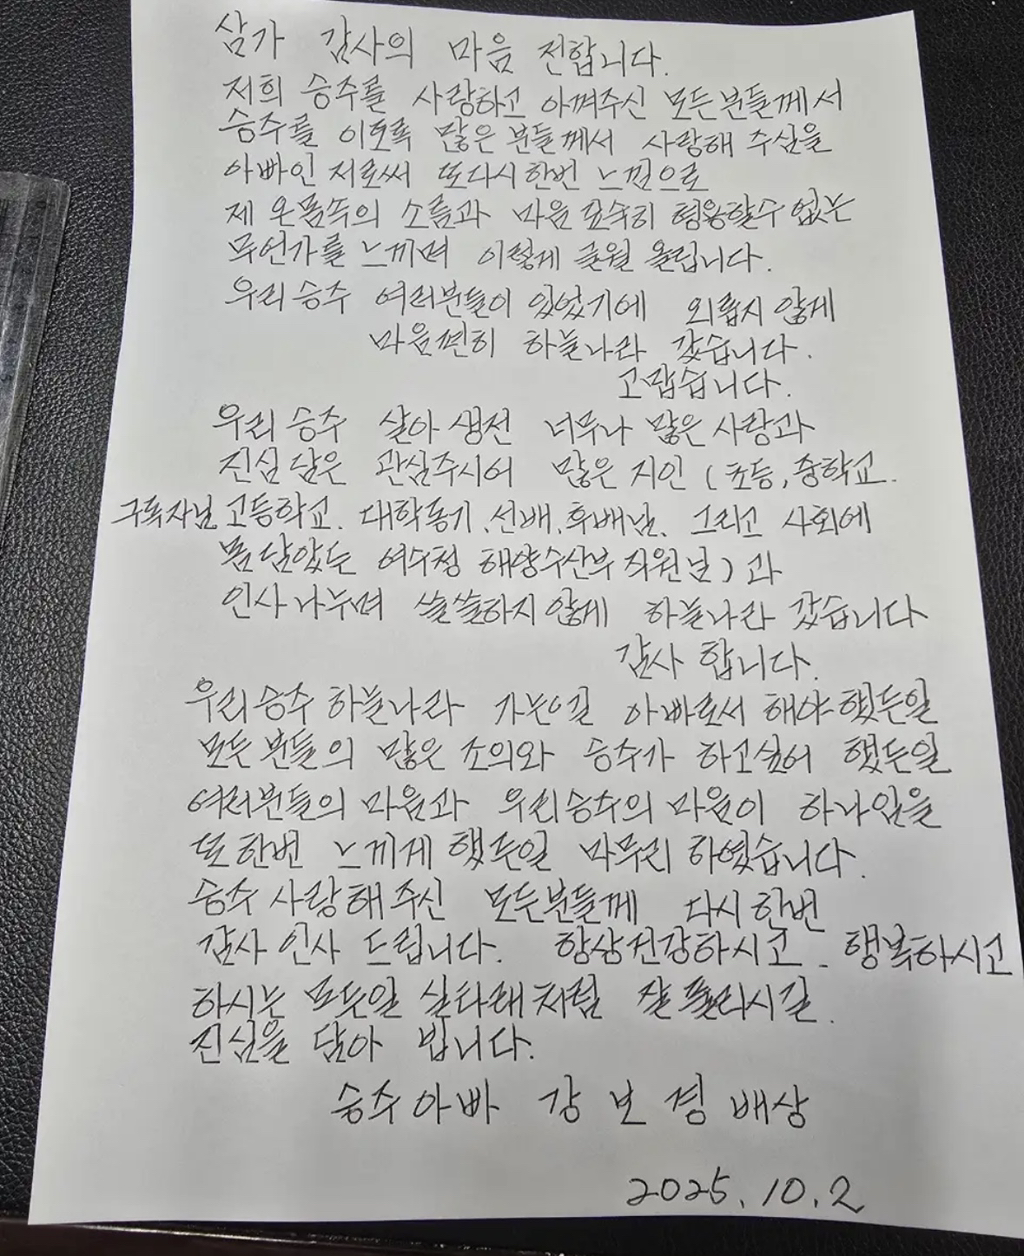 삼가 감사의 마음 전합니다.
저희 승주를 사랑하고 아껴주신 모든분들께서
승주를 이토록 많은 분들께서 사랑해 주심을
아빠인 저로써 또다시한번 느낌으로
제 온몸속의 소름과 마음 모속히 형용할수 없는
무언가를 느끼며 이렇게 글월 올립니다.
우리 승주 여러분들이 있었기에 외롭지 않게
마음편히 하늘나라 갔습니다.
고맙습니다.
우리 승주 살아 생전 너무나 많은 사랑과
진심담은 관심주시어 많은 지인 (초등, 중학교.
구독자님 고등학교. 대학동기, 선배, 후배님, 그리고 사회에
몸담았는 여수청 해양수산부 직원님) 과
인사 나누며 쓸쓸하지 않게 하늘나라 갔습니다
감사 합니다.
우리승주 하늘나라 가는길 아빠로서 해야했든일
모든 분들의 많은 조의와 승주가 하고싶어 했든일
여러분들의 마음과 우리승주의 마음이 하나임을
또한번 느끼게 했든일 마무리 하였습니다.
승주 사랑해주신 모든분들께 다시한번
감사 인사 드립니다. 항상건강하시고 행복하시고
하시는 모든일 실타래처럼 잘 풀리시길
진심을 담아 빕니다.
승주아빠 강보경 배상
2025.10.2